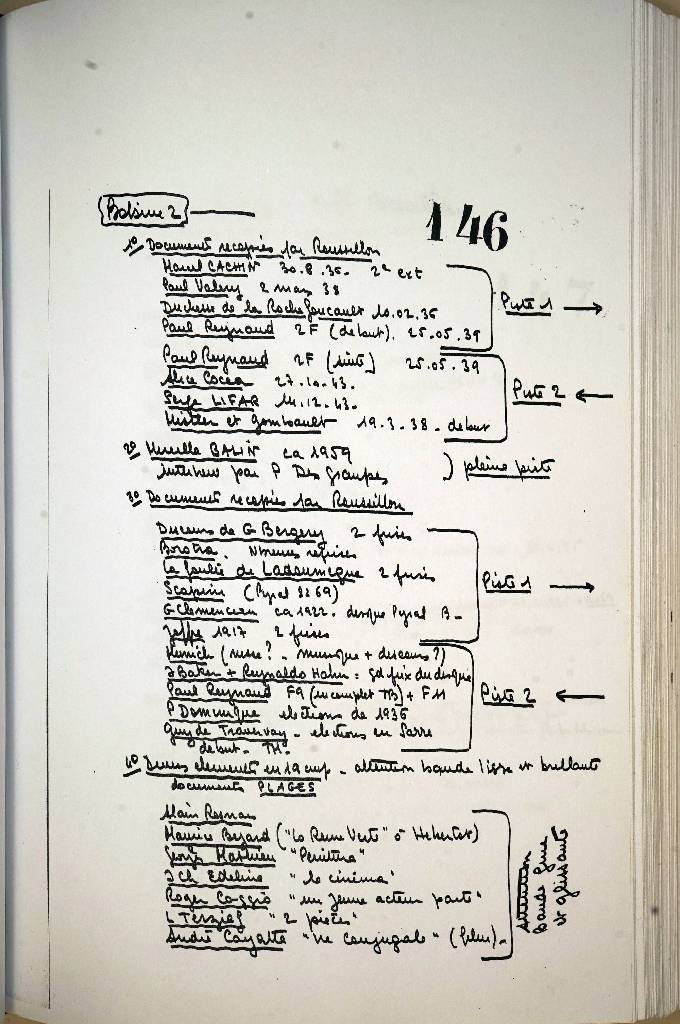 Bobine 2
146
1º Documents recopiés par Roussillon
Marcel CACHIN 30.8.35. 2e ext
Paul Valery 2 mars 38
Duchesse de la Rochefoucault 10.02.36
Paul Reynaud 2F (debut). 25.05.39
Piste 1 →
Paul Reynaud 2F (suite) 25.05.39
Alice Cocea 27.10.43.
Serge LIFAR 11.12.43.
Mistler et Gombault 19.3.38. debut
Piste 2 ←
2º Mireille BALIN ca 1959
interview par P Des Graupes
) pleine piste
3º Documents recopiés par Roussillon
Discours de G Bergery 2 faces
Borotra.
La foulée de Ladoumegue 2 faces
Scapini (Pyral 8269)
G Clemenceau ca 1922. disque Pyral B-
Joffre 1917 2 faces
Piste 1 →
Munich (russe? - musique + discours?)
J Baker + Reynaldo Hahn = gd prix du disque
Paul Reynaud F9 (incomplet TB) + F11
P Dominique elections de 1936
Guy de Traversay - elections en Sarre
debut - TM.
Piste 2 ←
4º Divers elements en 19 cm/s - attention bande lisse et brillante
documents PLAGES
Alain Resnais
Maurice Bejard ("La Reine Verte" à Hebertot)
Georges Mathieu "Peinture"
J Ch Edeline "le cinéma"
Roger Coggio "un jeune acteur parle"
L Terzieff "2 pièces"
André Cayatte "vie conjugale" (films).
Attention
bande fine
et glissante